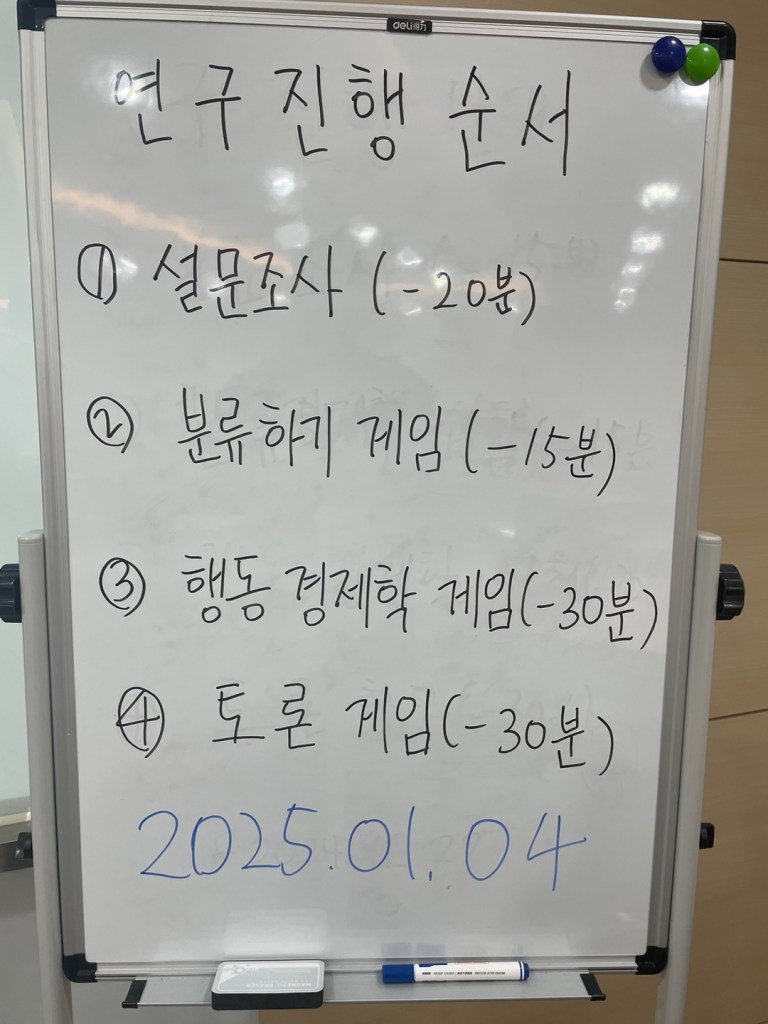 deli得力
연구 진행 순서
① 설문조사 (-20분)
② 분류하기 게임 (-15분)
③ 행동 경제학 게임(-30분)
④ 토론 게임(-30분)
2025.01.04